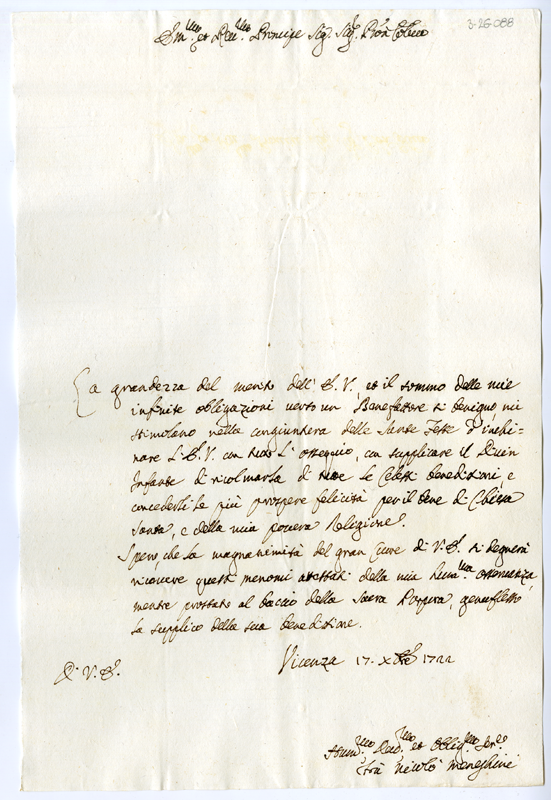 3-26-088
Em.mo et Rev.mo Principe Sig. Sig. Pron Col.mo
La grandezza del merito dell' E. V. et il sommo delle mie
infinite obligazioni verso un Benefattore si benigno, mi
stimolano nella congiuntura delle Sante Feste d'inchi=
nare l'E. V. con tutto l'ossequio, con supplicare il Divin
Infante di ricolmarla di tutte le Celesti benedizioni, e
concederli le più prospere felicità per il bene di Chiesa
Santa, e della mia povera Religione.
Spero, che la magnanimità del gran Cuore di V. E. si degnerà
ricevere questi menomi attestati della mia hum.ma osservanza,
mentre prostrato al baccio della Sacra Porpora, genuflesso
la supplico della sua benedizione.
Di V. E.
Vicenza 17. Xbre 1722
Hum.mo Dev.mo et Oblig.mo Ser.e
Frà Nicolò Meneghini